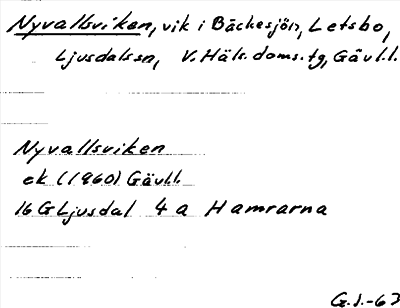 Nyvallsviken, vik i Bäckesjön, Letsbo,
Ljusdals sn, V. Häls. doms. tg, Gävl. l.
Nyvallsviken
ek (1960) Gävl.l.
16 G Ljusdal 4 a Hamrarna
G.J.-63